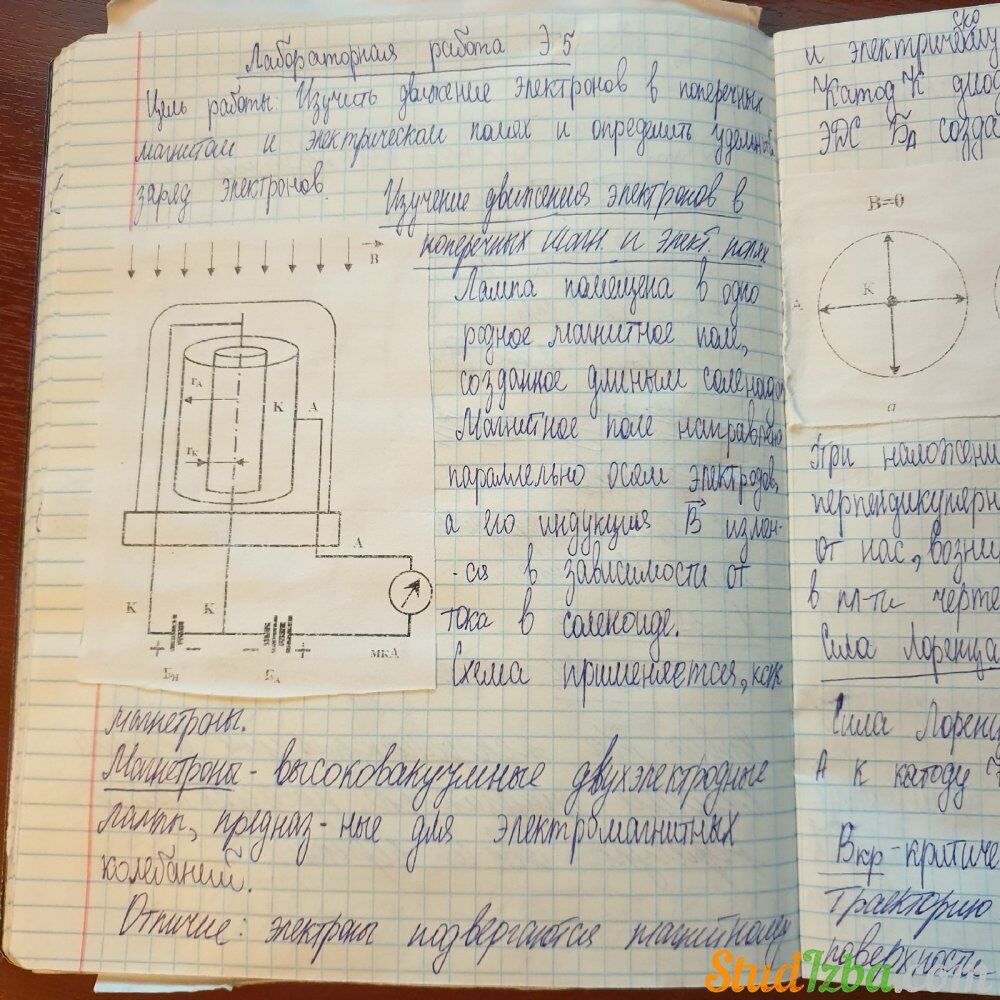 Лабораторная работа Э 5
Цель работы: Изучить движение электронов в поперечных
магнитом и электрическом полях и определить удельный
заряд электронов.
Изучение движения электронов в
поперечных магн. и элект. полях
B
Лампа помещена в одно
родное магнитное поле,
созданное длиным соленоидом
Магнитное поле направлено
параллельно осям электродов,
а его индукция B измен-
-ся в зависимости от
тока в соленоиде.
Схема применяется, как
магнетроны.
rА
К
А
rК
А
К
К
+ - - + мкА
БН
БА
Магнетроны - высоковакуумные двухэлектродные
лампы, предназ-ные для электромагнитных
колебаний.
Отличие: электроны подвергаются магнитному
ско
и электрическому
Катод К диод
ЭДС БА созда
B=0
А
К
а
При наложени
перпендикулярн
от нас, возни
в пл-ти черте
Сила Лоренца
Сила Лоренц
А к катоду К
Вкр - критиче
траекторию
поверхности
StudIzba.com